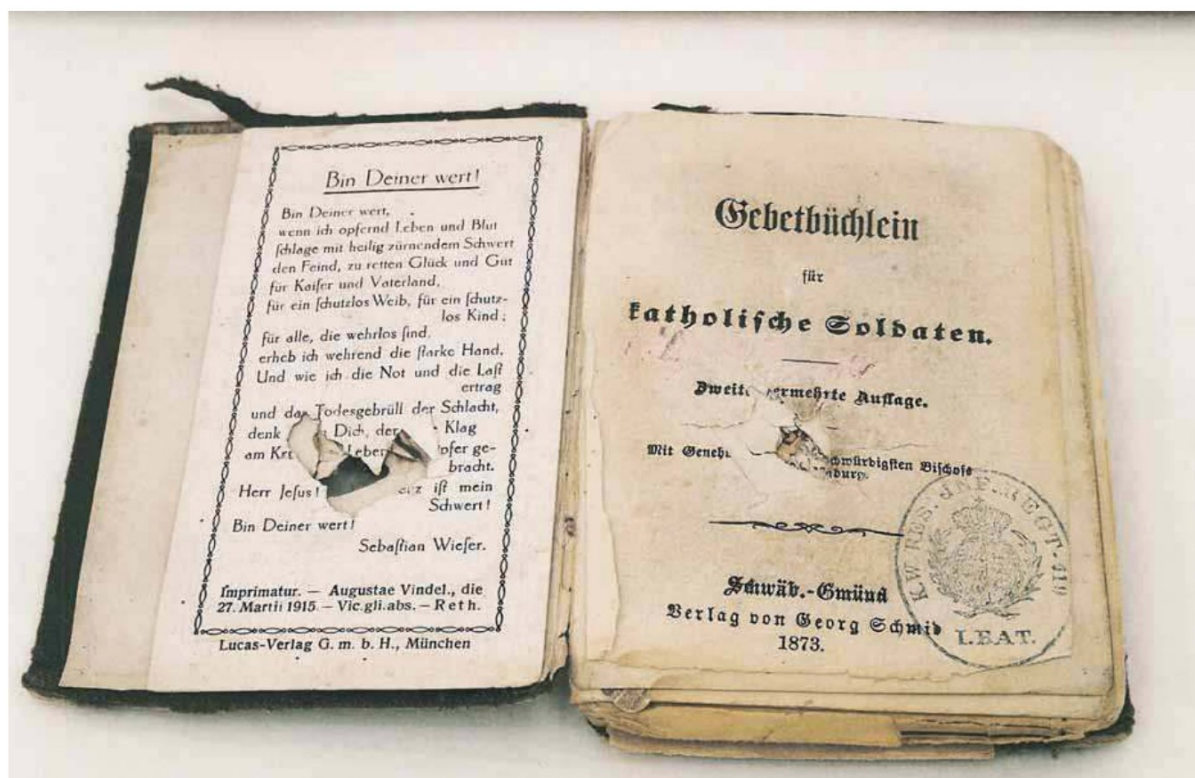 Bin Deiner wert!
Bin Deiner wert,
wenn ich opfernd Leben und Blut
ſchlage mit heilig zürnendem Schwert
den Feind, zu retten Glück und Gut
für Kaiſer und Vaterland,
für ein ſchutzlos Weib, für ein ſchutz-
los Kind;
für alle, die wehrlos ſind,
erheb ich wehrend die ſtarke Hand,
Und wie ich die Not und die Laſt
ertrag
und das Todesgebrüll der Schlacht,
denk Dich, der Klag
am ge-
bracht.
Herr Jeſus! iſt mein
Schwert!
Bin Deiner wert!
Sebaſtian Wieſer.
Imprimatur. — Augustae Vindel., die
27. Martii 1915. – Vic. gli. abs. – Reth.
Lucas-Verlag G. m. b. H., München
Gebetbüchlein
für
katholiſche Soldaten.
Auflage.
Mit Biſchofs
Schwäb.-Gmünd
Verlag von Georg Schmid
1873.
K.W. RES. INF. REGT.
I. BAT.